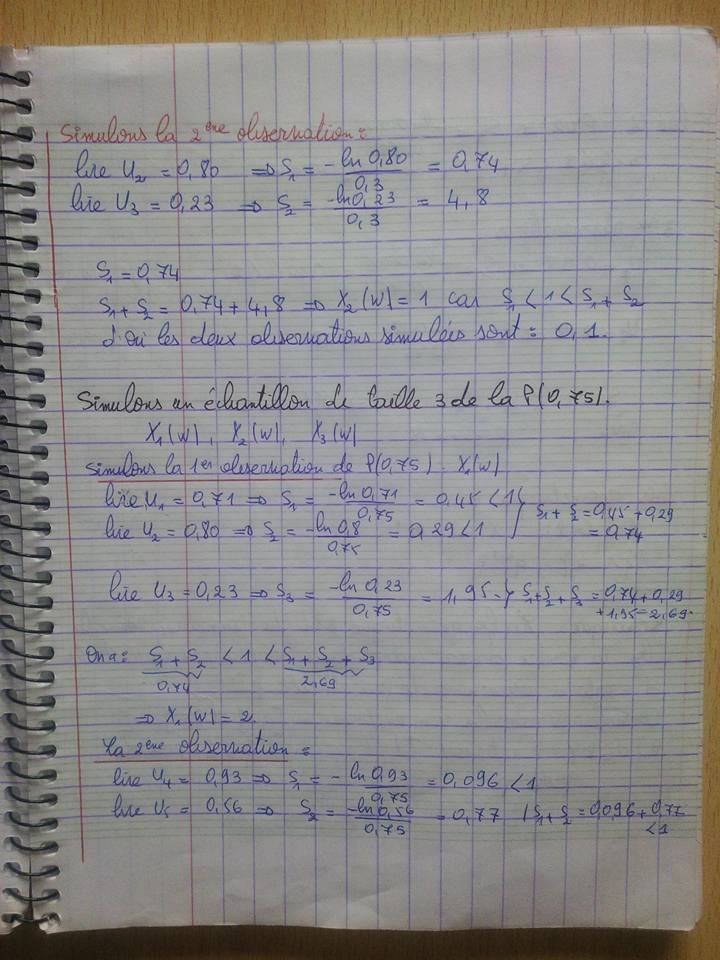 Simulons la 2ème observation :
lire U₂ = 0,80 ⇒ S₁ = -ln 0,80 / 0,3 = 0,74
lire U₃ = 0,23 ⇒ S₂ = -ln 0,23 / 0,3 = 4,8
S₁ = 0,74
S₁ + S₂ = 0,74 + 4,8 ⇒ X₂(w) = 1 car S₁ < 1 < S₁ + S₂
d'où les deux observations simulées sont : 0,1.
Simulons un échantillon de taille 3 de la P(0,75).
X₁(w), X₂(w), X₃(w)
Simulons la 1er observation de P(0,75). X₁(w)
lire U₁ = 0,71 ⇒ S₁ = -ln 0,71 / 0,75 = 0,45 < 1 } S₁ + S₂ = 0,45 + 0,29
lire U₂ = 0,80 ⇒ S₂ = -ln 0,8 / 0,75 = 0,29 < 1 = 0,74
lire U₃ = 0,23 ⇒ S₃ = -ln 0,23 / 0,75 = 1,95. } S₁+S₂+S₃ = 0,74 + 0,29
+ 1,95 = 2,69.
On a : S₁ + S₂ < 1 < S₁ + S₂ + S₃
0,74 2,69
⇒ X₁(w) = 2
La 2ème observation :
lire U₄ = 0,93 ⇒ S₁ = - ln 0,93 / 0,75 = 0,096 < 1
lire U₅ = 0,56 ⇒ S₂ = -ln 0,56 / 0,75 = 0,77 / S₁ + S₂ = 0,096 + 0,77
< 1